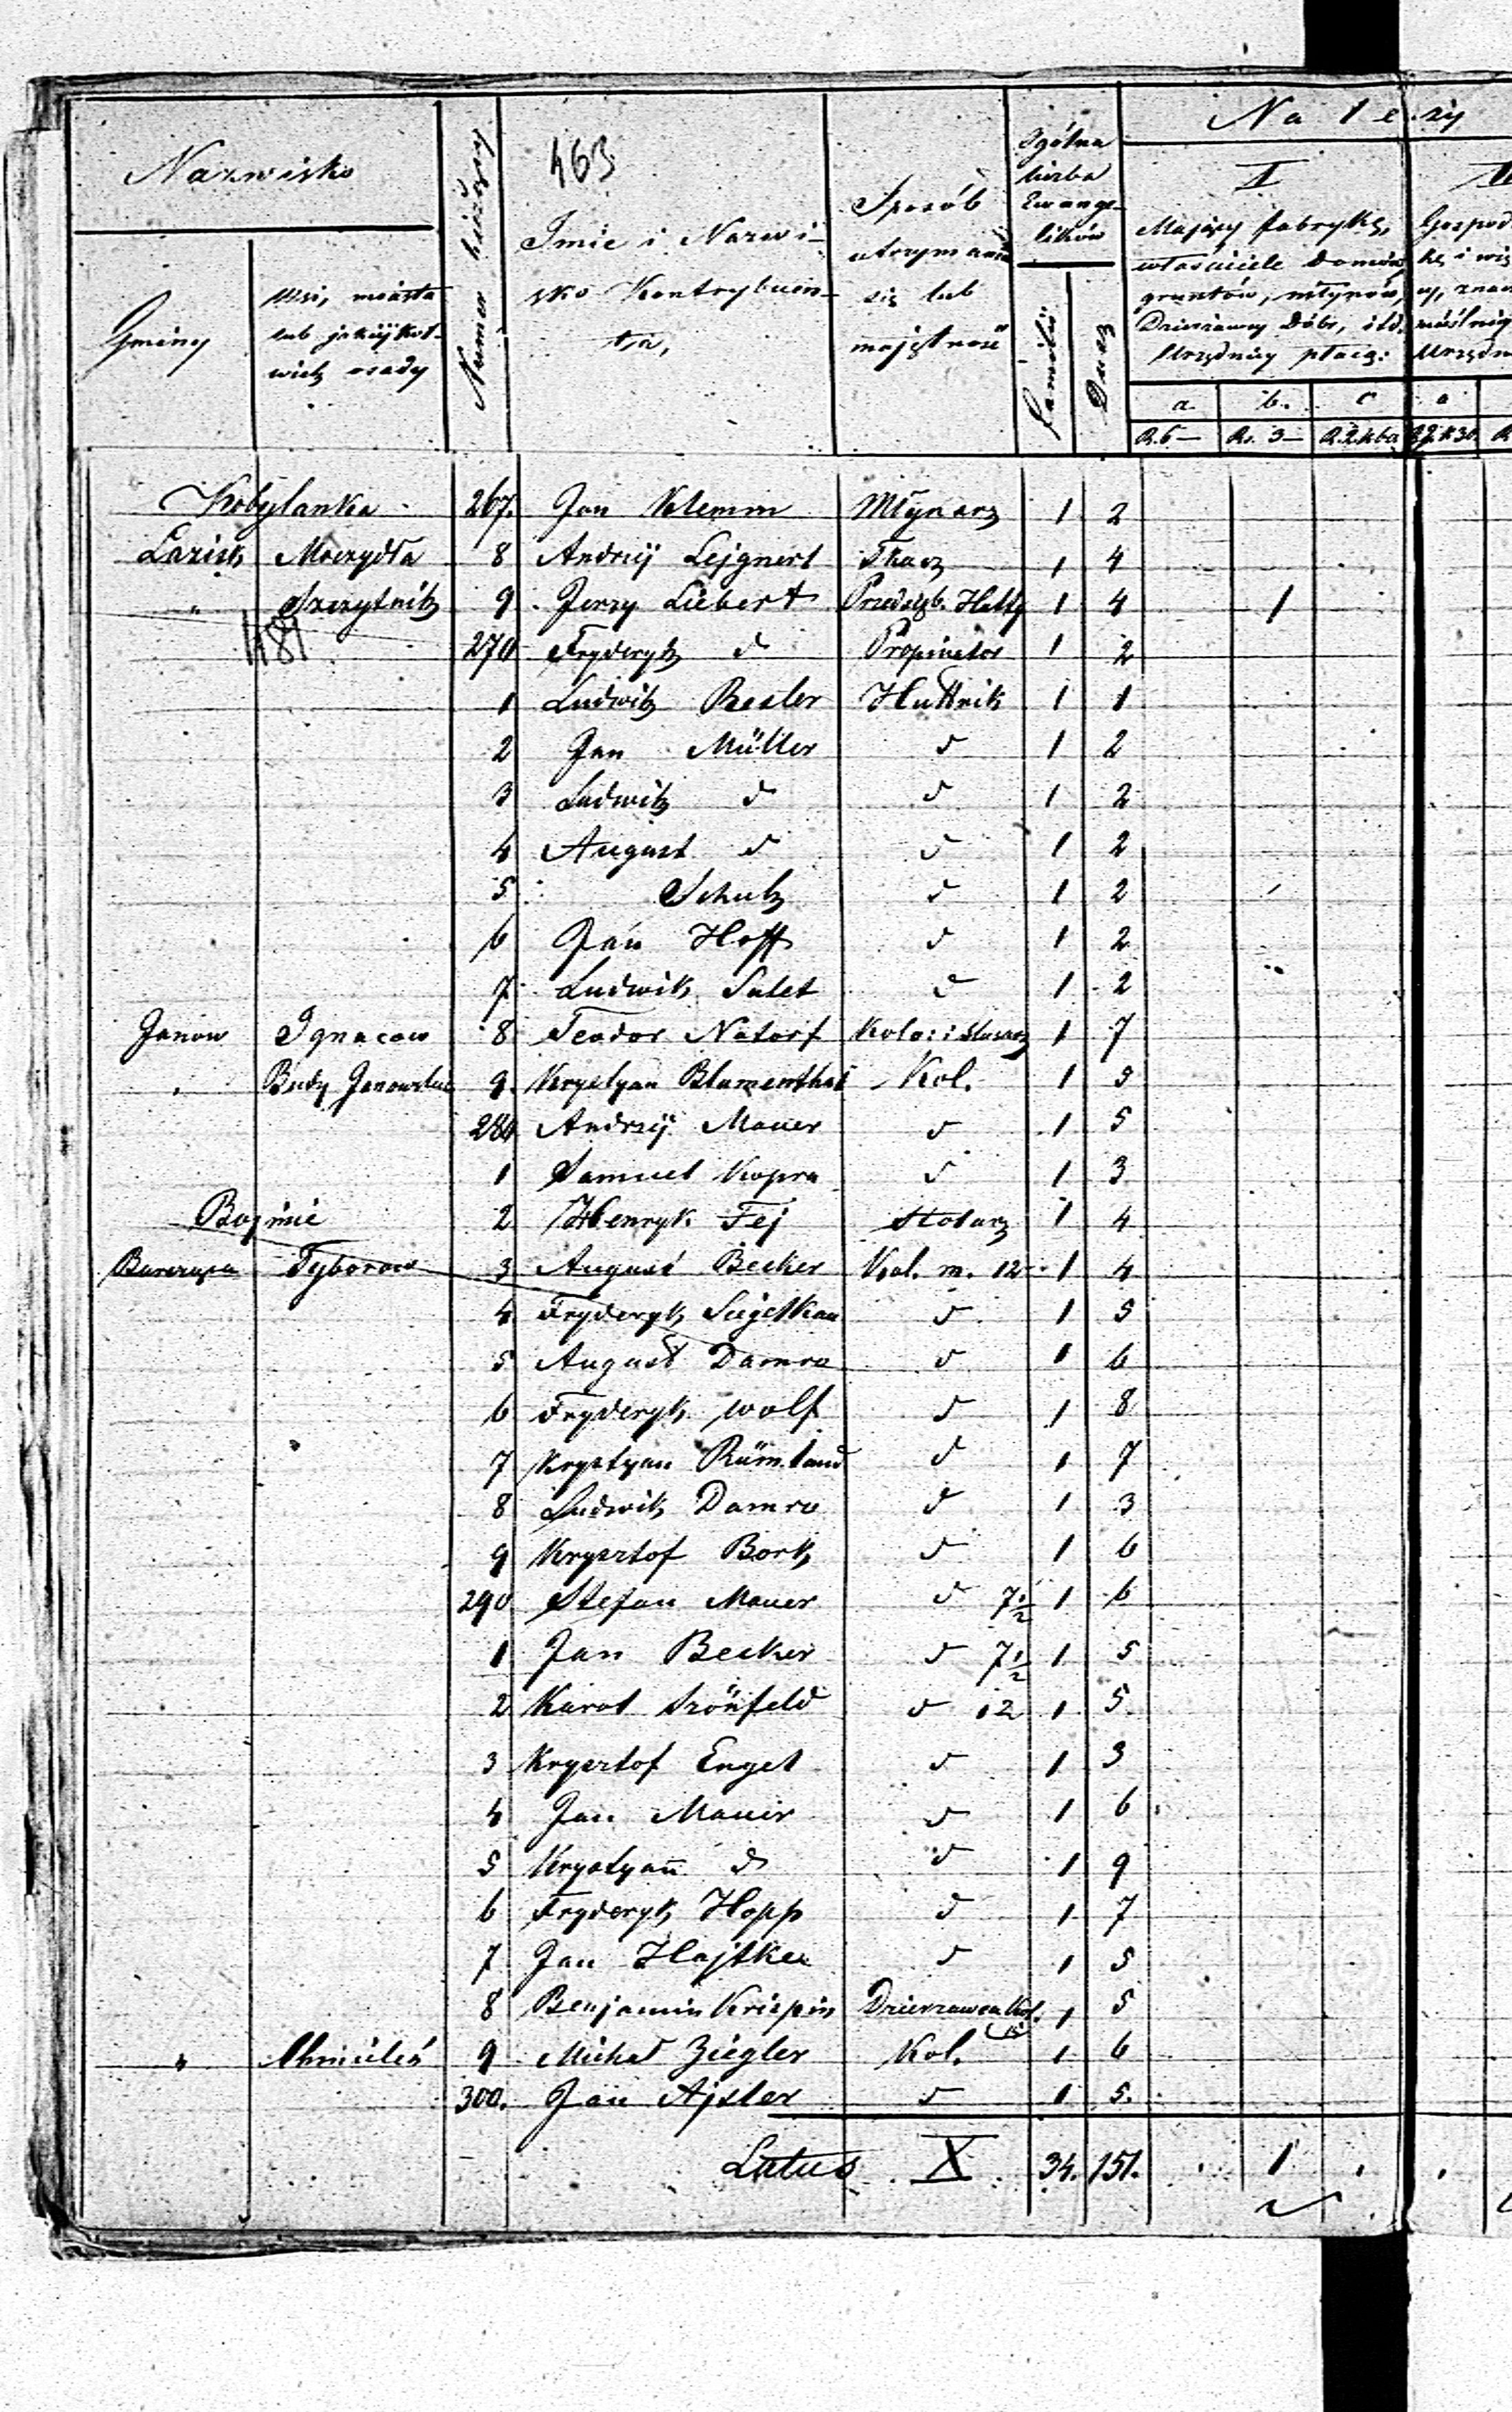 Na leży
463
Nazwisko
Gminy
Wsi, miasta
lub jakiejkol-
wiek osady
Numer bieżący
Imie i Nazwi-
sko Kontrybuen-
ta,
Sposób
utrzymania
się lub
majętność
Ogólna
liczba
Ewange-
lików
Familii
Dusz
I
Mający fabrykę,
właściciele domów,
gruntów, młynów,
Dzierżawcy Dóbr, itd.
Urzędnicy płacą:
a. b. c a
R. 6 — Rs. 3 —
Kobylanka 267. Jan Klemm Młynarz 1 2
Łazisk Moczydła 8 Andrzij Lejgnert Tkacz 1 4
" Szczytnik 9 Jerzy Liebert Przedsięb. Hutty 1 4 1
481
270 Fryderyk d Propinator 1 2
1 Ludwik Besler Huttnik 1 1
2 Jan Müller d 1 2
3 Ludwik d d 1 2
4 August d d 1 2
5 Schulz d 1 2
6 Jan Hoff d 1 2
7 Ludwik Salet d 1 2
Janow Ignacow 8 Teodor Natorf 1 7
" Budy Janowskie 9. Krystyan Blumenthal Kol. 1 5
280 Andrzij Mauer d 1 5
1 Samuel Kopra d 1 3
2 Henryk Fej Stolarz 1 4
Tyborow 3 August Becker Kol. m. 12 1 4
4 Fryderyk d 1 5
5 August Damra d 1 6
6 Fryderyk Wolf d 1 8
7 Krystyan d 1 7
8 Ludwik Damra d 1 3
9 Krysztof Bork d 1 6
290 Stefan Mauer d 7½ 1 6
1 Jan Becker d 7½ 1 5
2 Karol Szönfeld d 12 1 5
3 Krysztof Engel d 1 3
4 Jan Mauer d 1 6
5 Krystyan d d 1 9
6 Fryderyk Hopp d 1 7
7 Jan Hajtke d 1 5
8 Benjamin Krispin Dzierzawca Kol. 1 5
" 9 Michał Ziegler Kol. 1 6
300. Jan Ajsler d 1 5.
Latus X 34. 151. 1